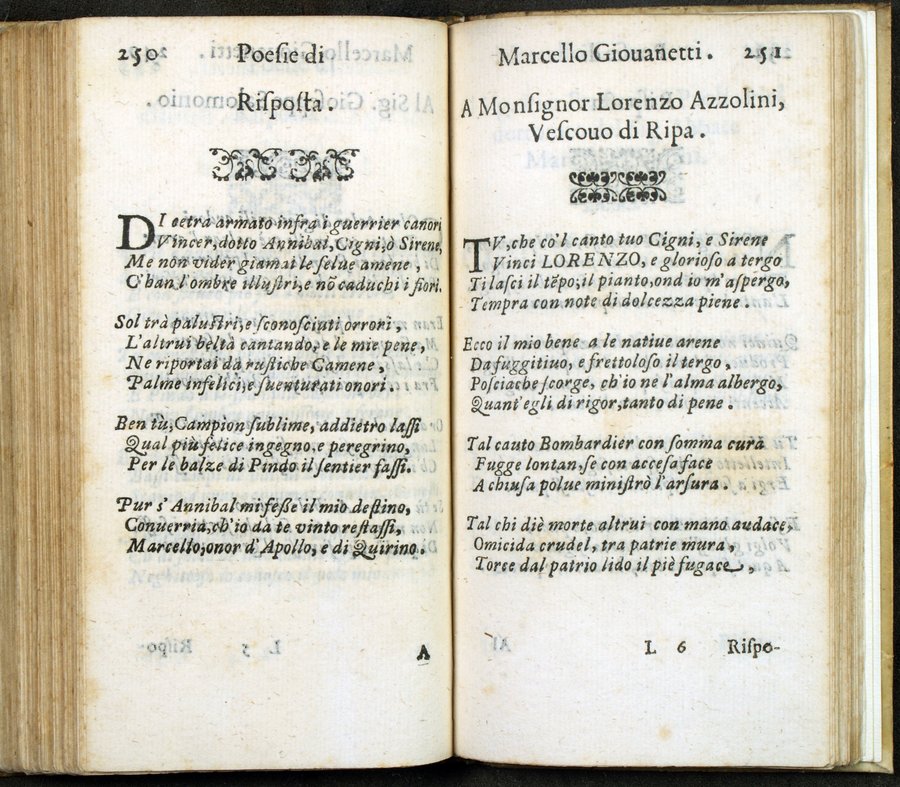 250 Poeſie di
Riſpoſta.
DI cetrà armato infra i guerrier canori
Vincer, dotto Annibal, Cigni, ò Sirene,
Me non vider giamai le ſelue amene,
C'han l'ombre illuſtri, e nō caduchi i fiori.
Sol trà paluſtri, e ſconoſciuti orrori,
L'altrui beltà cantando, e le mie pene,
Ne riportai dà ruſtiche Camene,
Palme infelici, e ſuenturati onori.
Ben tù, Campion ſublime, addietro laſſi
Qual più felice ingegno, e peregrino,
Per le balze di Pindo il ſentier faſſi.
Pur s'Annibal mi feſſe il mio deſtino,
Conuerria, ch'io da te vinto reſtaſſi,
Marcello, onor d'Apollo, e di Quirino.
A
Marcello Giouanetti. 251
A Monſignor Lorenzo Azzolini,
Veſcouo di Ripa.
TV, che co'l canto tuo Cigni, e Sirene
Vinci LORENZO, e glorioſo a tergo
Ti laſci il tēpo; il pianto, ond io m'aſpergo,
Tempra con note di dolcezza piene.
Ecco il mio bene a le natiue arene
Da fuggitiuo, e frettoloſo il tergo,
Poſciache ſcorge, ch'io ne l'alma albergo,
Quant'egli di rigor, tanto di pene.
Tal cauto Bombardier con ſomma curà
Fugge lontan, ſe con acceſa face
A chiuſa polue miniſtrò l'arſura.
Tal chi diè morte altrui con mano audace,
Omicida crudel, tra patrie mura,
Torce dal patrio lido il piè fugace,
L 6 Riſpo-